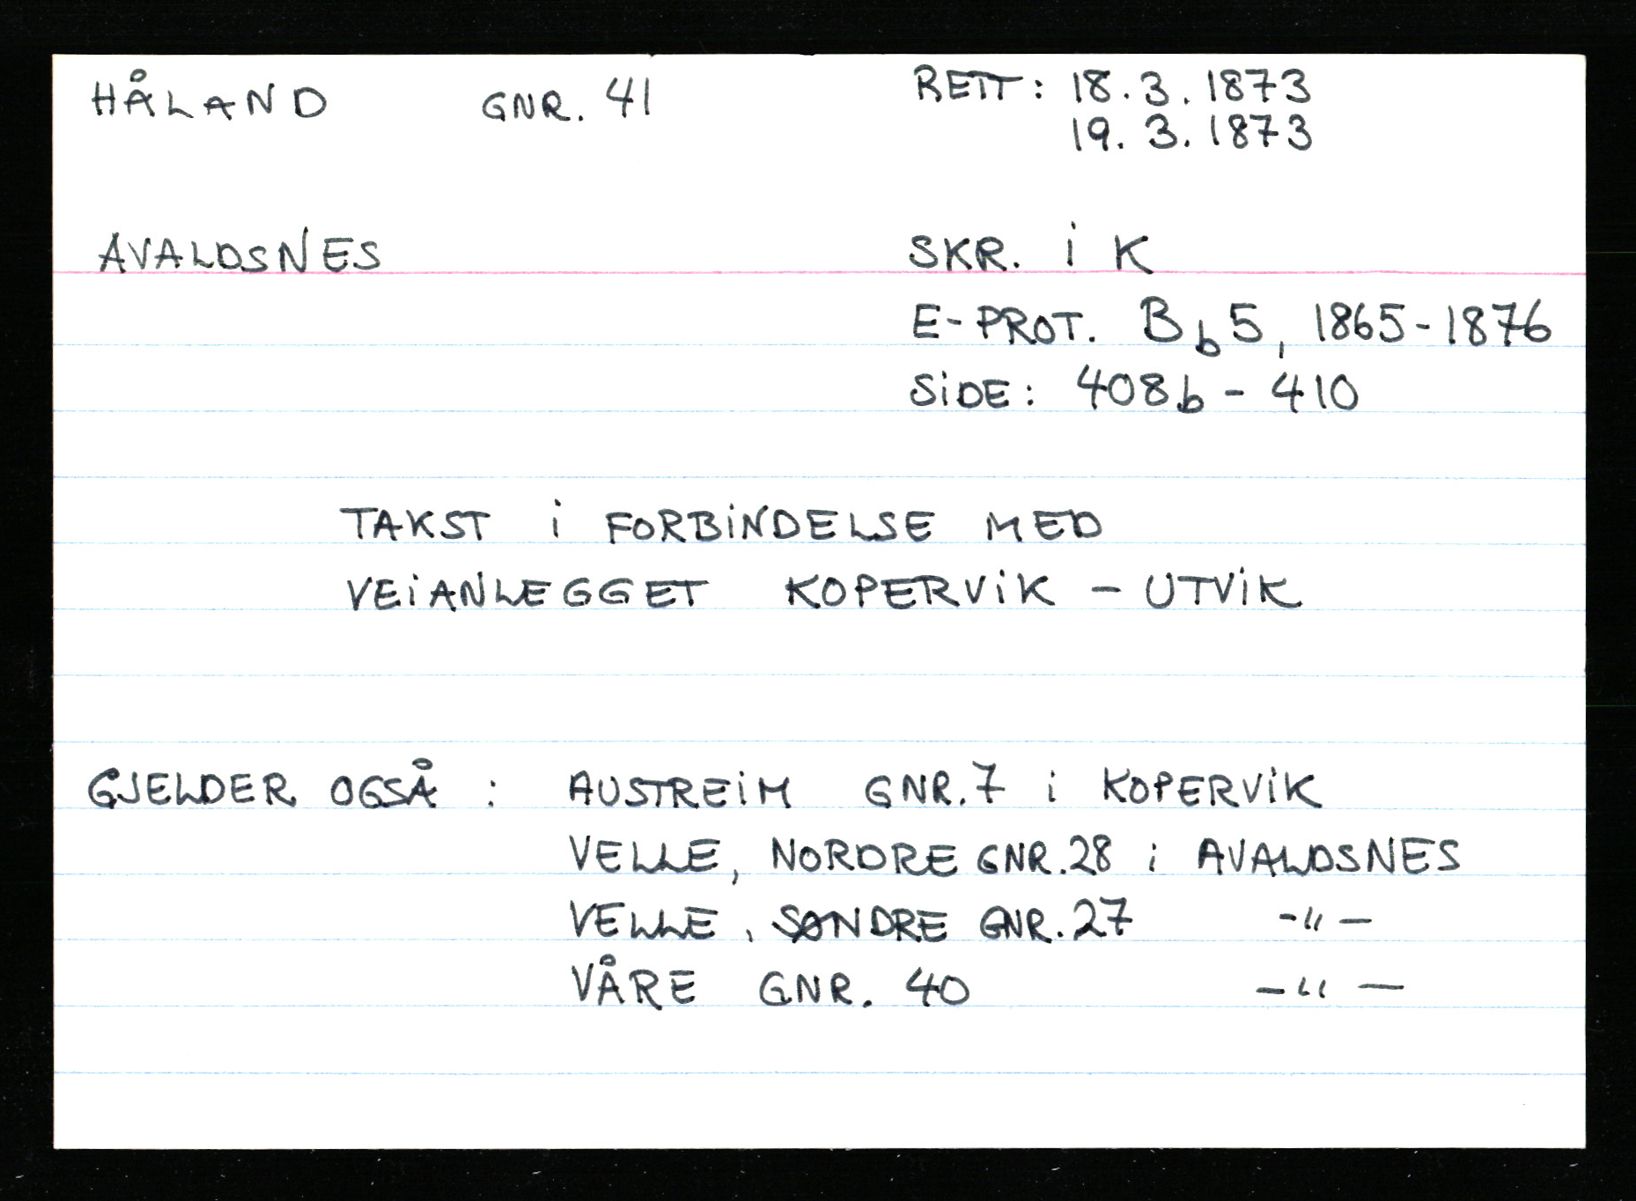 HÅLAND GNR. 41 RETT: 18.3.1873
19.3.1873
AVALDSNES SKR. i K
E-PROT. Bb5, 1865-1876
SiDE: 408b - 410
TAKST i FORBiNDELSE MED
VEiANLEGGET KOPERViK - UTViK
GJELDER OGSÅ : AUSTREiM GNR.7 i KOPERViK
VELLE, NORDRE GNR.28 i AVALDSNES
VELLE, SØNDRE GNR.27 -"-
VÅRE GNR. 40 -"-